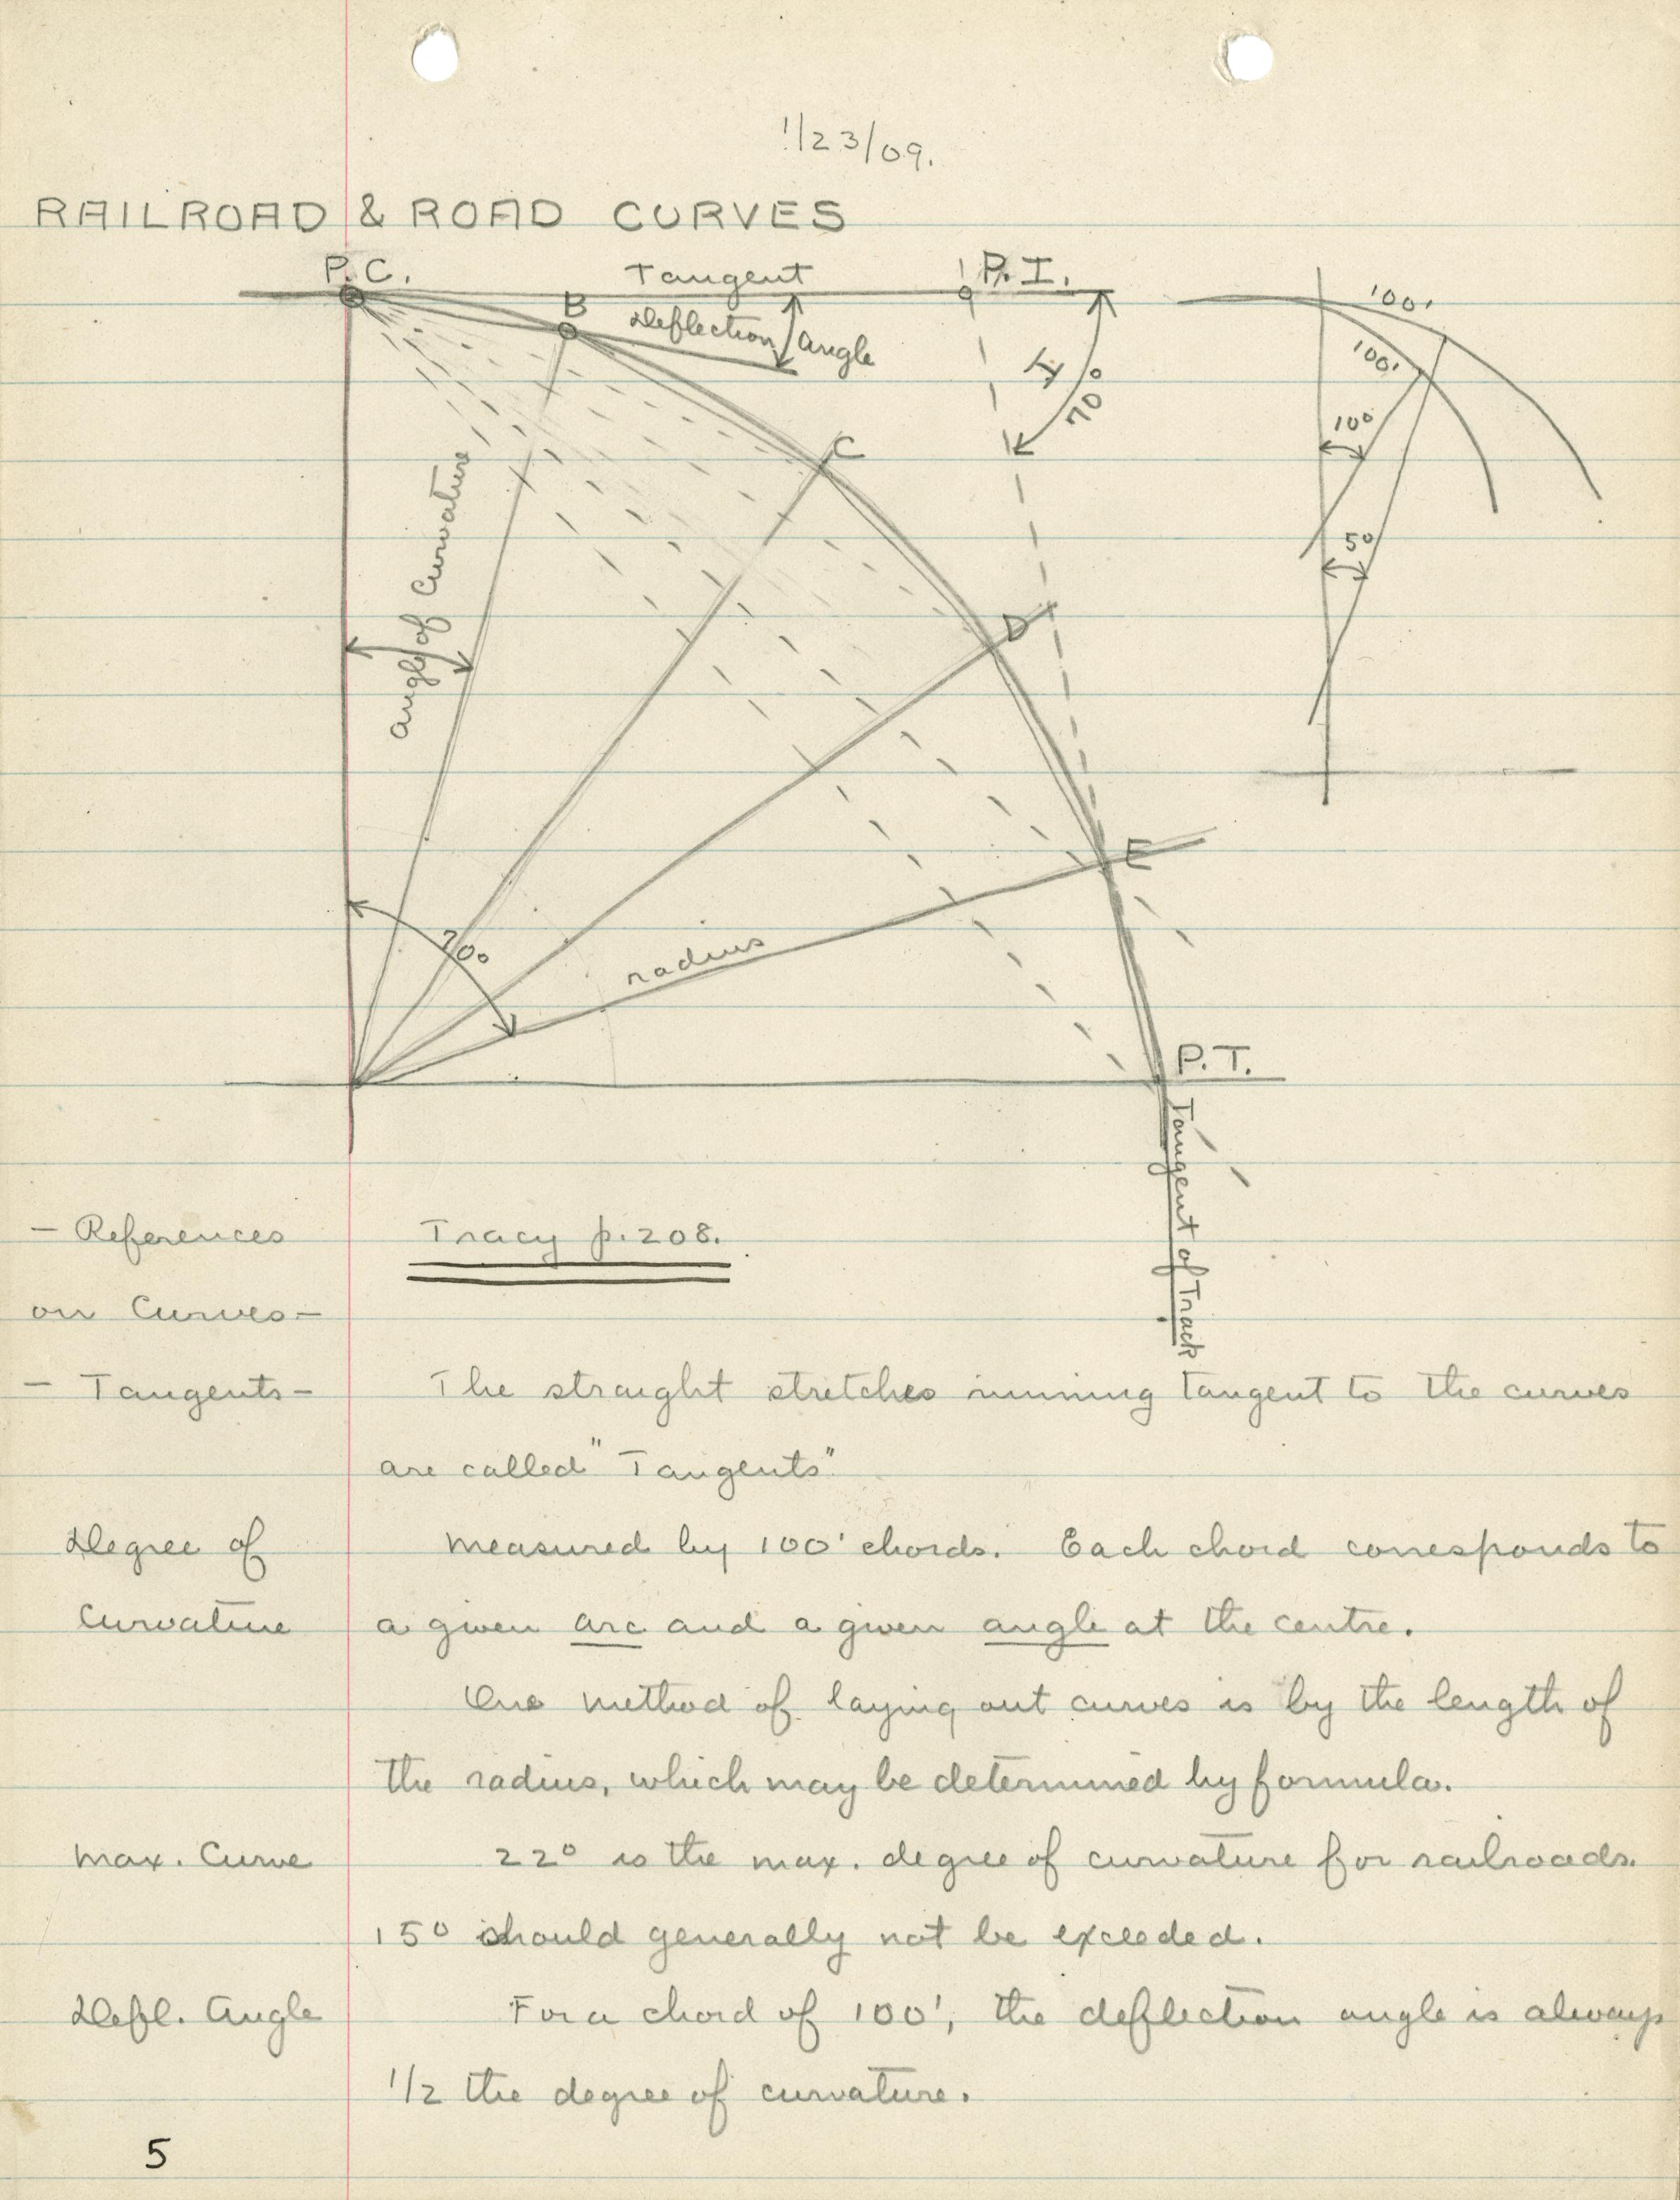 1/23/09.
RAILROAD & ROAD CURVES
P.C. Tangent P.I.
B
Deflection angle
100'
100'
70
10°
C
5°
angle of Curvature
D
E
70°
radius
P.T.
Tangent of Track
- References Tracy p. 208.
on Curves -
- Tangents - The straight stretches running tangent to the curves
are called "Tangents"
Degree of measured by 100' chords. Each chord corresponds to
Curvature a given arc and a given angle at the centre.
One method of laying out curves is by the length of
the radius, which may be determined by formula.
Max. Curve 22° is the max. degree of curvature for railroads.
15° should generally not be exceeded.
Defl. Angle For a chord of 100', the deflection angle is always
1/2 the degree of curvature.
5